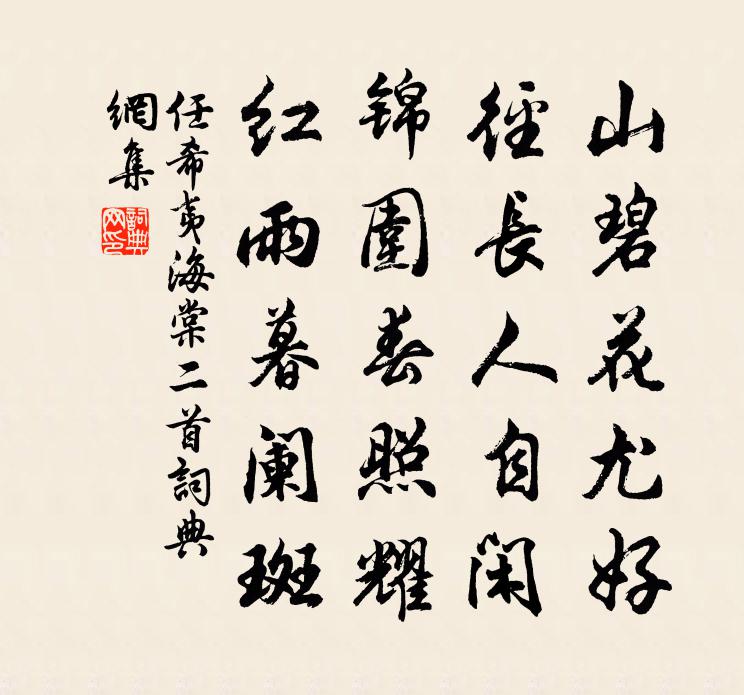 山碧花尤好
徑長人自闲
锦圍春照耀
红雨暮阑斑
任希夷海棠二首詞典
網集
詞典
网印